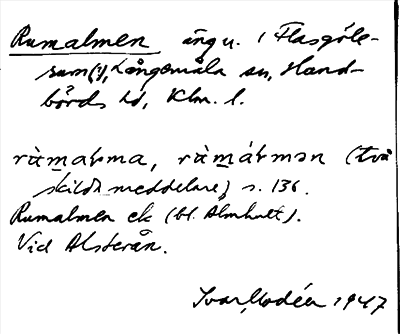 Rumalmen äng u. i Flasgöle-
rum(?), Långemåla sn, Hand-
börds hd, Klm. l.
ràmarma, ràmármən (två
skilda meddelare) s. 136.
Rumalmen ek (bl. Älmhult).
Vid Alsterån.
Ivar Modéer 1947